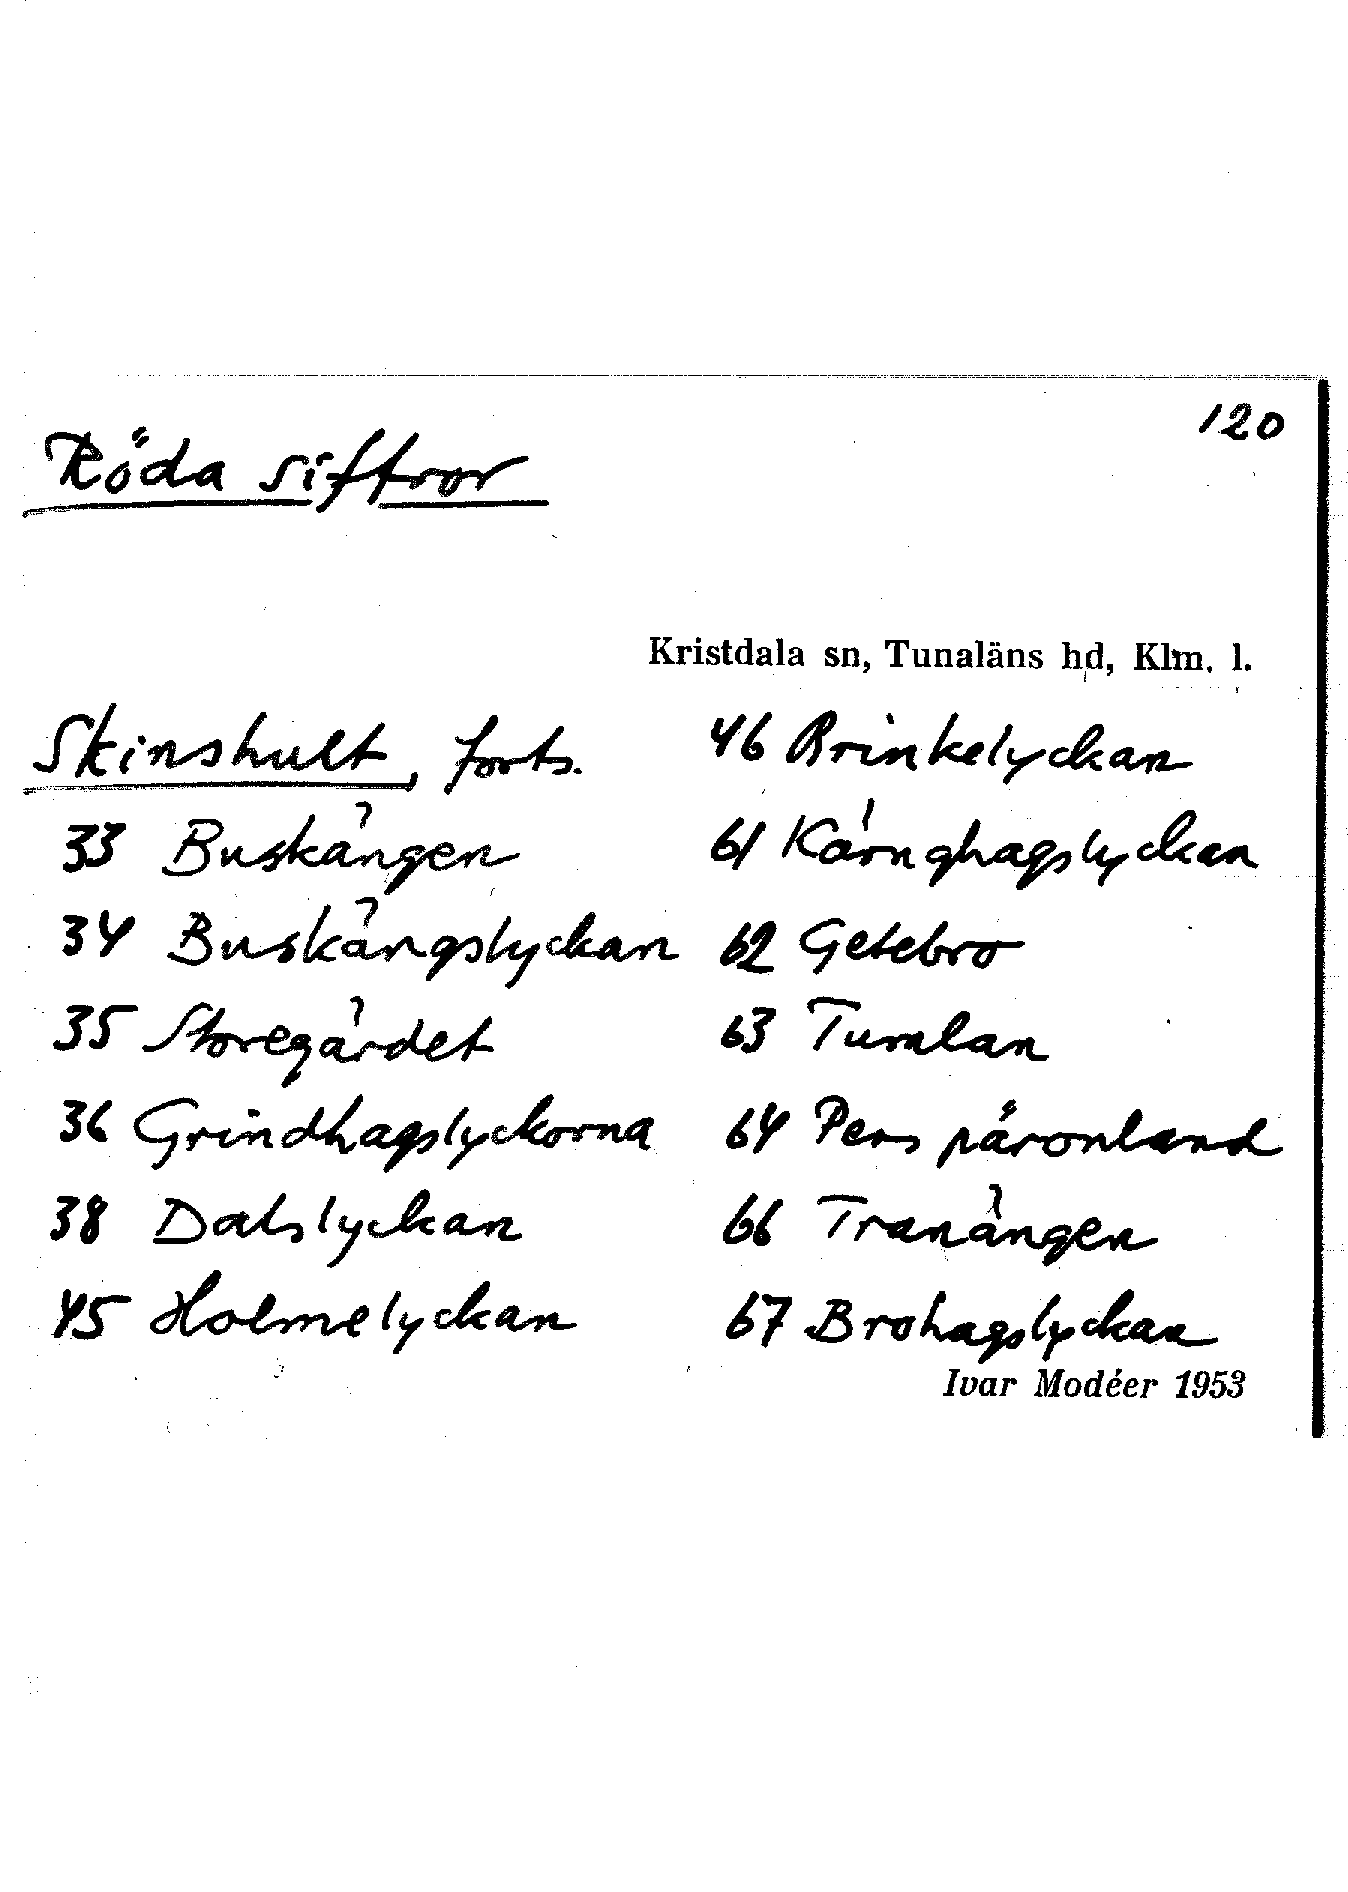 120
Röda siffror
Kristdala sn, Tunaläns hd, Klm. l.
Skinshult, forts.
33 Buskängen
34 Buskängslyckan
35 Storegärdet
36 Grindhagslyckorna
38 Dalslyckan
45 Holmelyckan
46 Brinkelyckan
61 Kärnghagslyckan
62 Getebro
63 Tumlan
64 Pers päronland
66 Tranängen
67 Brohagslyckan
Ivar Modéer 1953